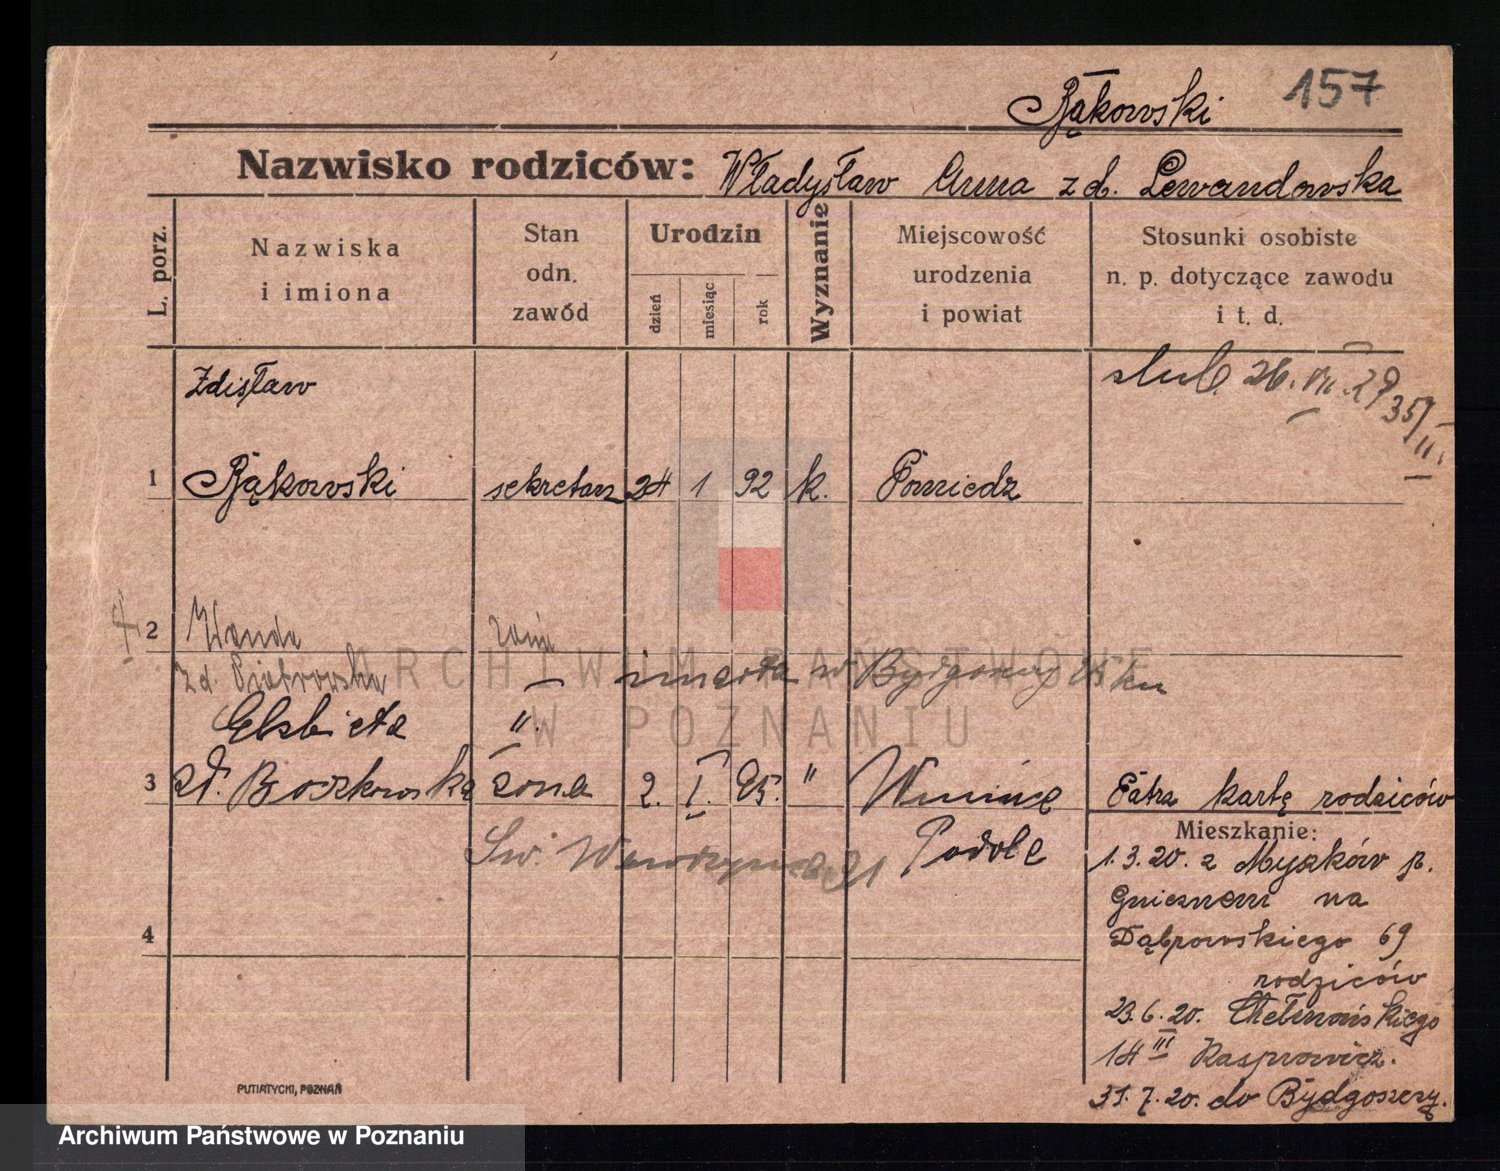 Bąkowski 157
Nazwisko rodziców: Władysław Anna z d. Lewandowska
L. porz.
Nazwiska i imiona
Stan odn. zawód
Urodzin
dzień miesiąc rok
Wyznanie
Miejscowość urodzenia i powiat
Stosunki osobiste n. p. dotyczące zawodu i t. d.
Zdisław
ślub 26. VII. 29
35/II.
1 Bąkowski sekretarz 24 1 92 k. Powiedz
2 Wanda żona
zd. Piotrowska zmarła w Bydgoszczy
Elsbieta "
3 zd. Boczkowska żona 2. I. 95. " Winnicę
Podole
Patrz kartę rodziców
Mieszkanie:
Św. Wawrzyńca
1.3.20. z Myszków p.
Gnieznem na
4
Dąbrowskiego 69
rodziców
23.6.20. Chełmońskiego
14 III Kasprowicz.
31.7.20. do Bydgoszczy.
PUTIATYCKI, POZNAŃ
ARCHIWUM PAŃSTWOWE
W POZNANIU
Archiwum Państwowe w Poznaniu